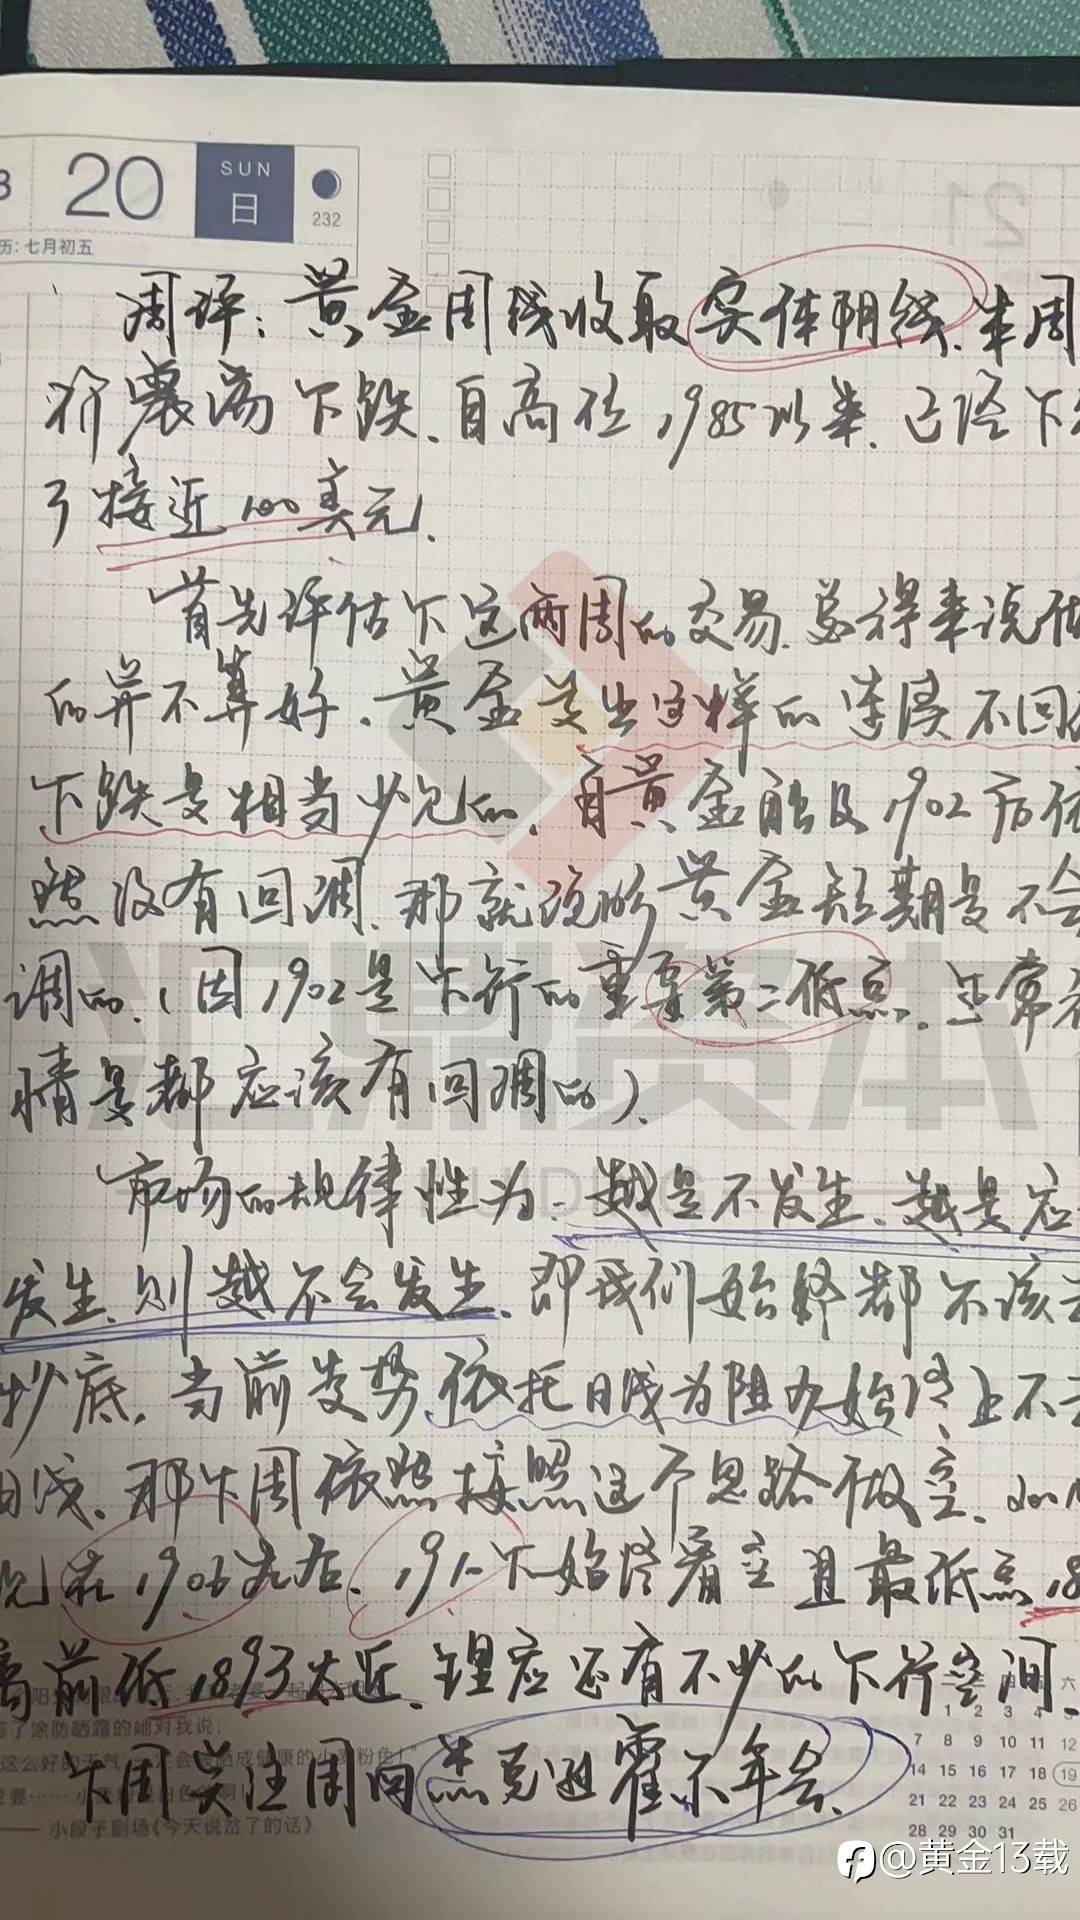 20
SUN
日
232
历: 七月初五
21
周评：黄金周线收取实体阴线.本周
所震荡下跌.自高位1985以来.已经下
了接近100美元.
首先评估下这两周的交易.总得来说做
的并不算好.黄金发生这样的连续不回
下跌是相当少见的.自黄金触及1902后依
然没有回调.那就说明黄金短期是不会
调的.(因1902是下行的重要第二低点.正常
情是都应该有回调的).
市场的规律性为：越是不发生.越是应
发生.则越不会发生.即我们始终都不该去
抄底.当前走势.依托日线为阻力始终上不去
日线.那下周依照按照这个思路做空.
现在1906左右.191 下始终看空且最低点18
离前低1893太近.理应还有不少的下行空间.
下周关注周间杰克逊霍尔年会.
了涂防晒霜的她对我说：
小段子剧场《今天说岔了的话》
六
1 2 3 4 5
7 8 9 10 11 12
14 15 16 17 18 19
21 22 23 24 25 26
28 29 30 31
汇鼎资本
@黄金13载